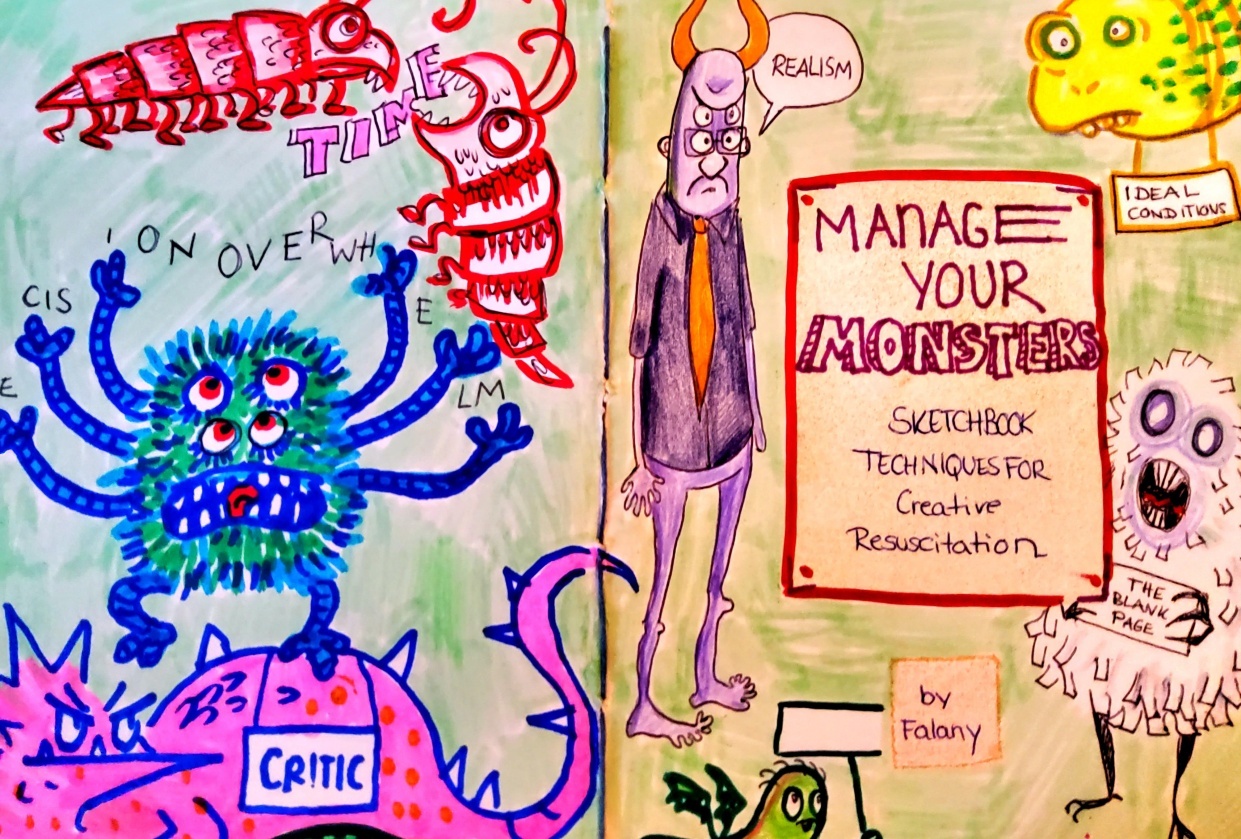 TIME
E CIS I ON OVERWH E LM
CRITIC
REALISM
IDEAL
CONDITIONS
MANAGE
YOUR
MONSTERS
SKETCHBOOK
TECHNIQUES FOR
Creative
Resuscitation
THE
BLANK
PAGE
by
Falany